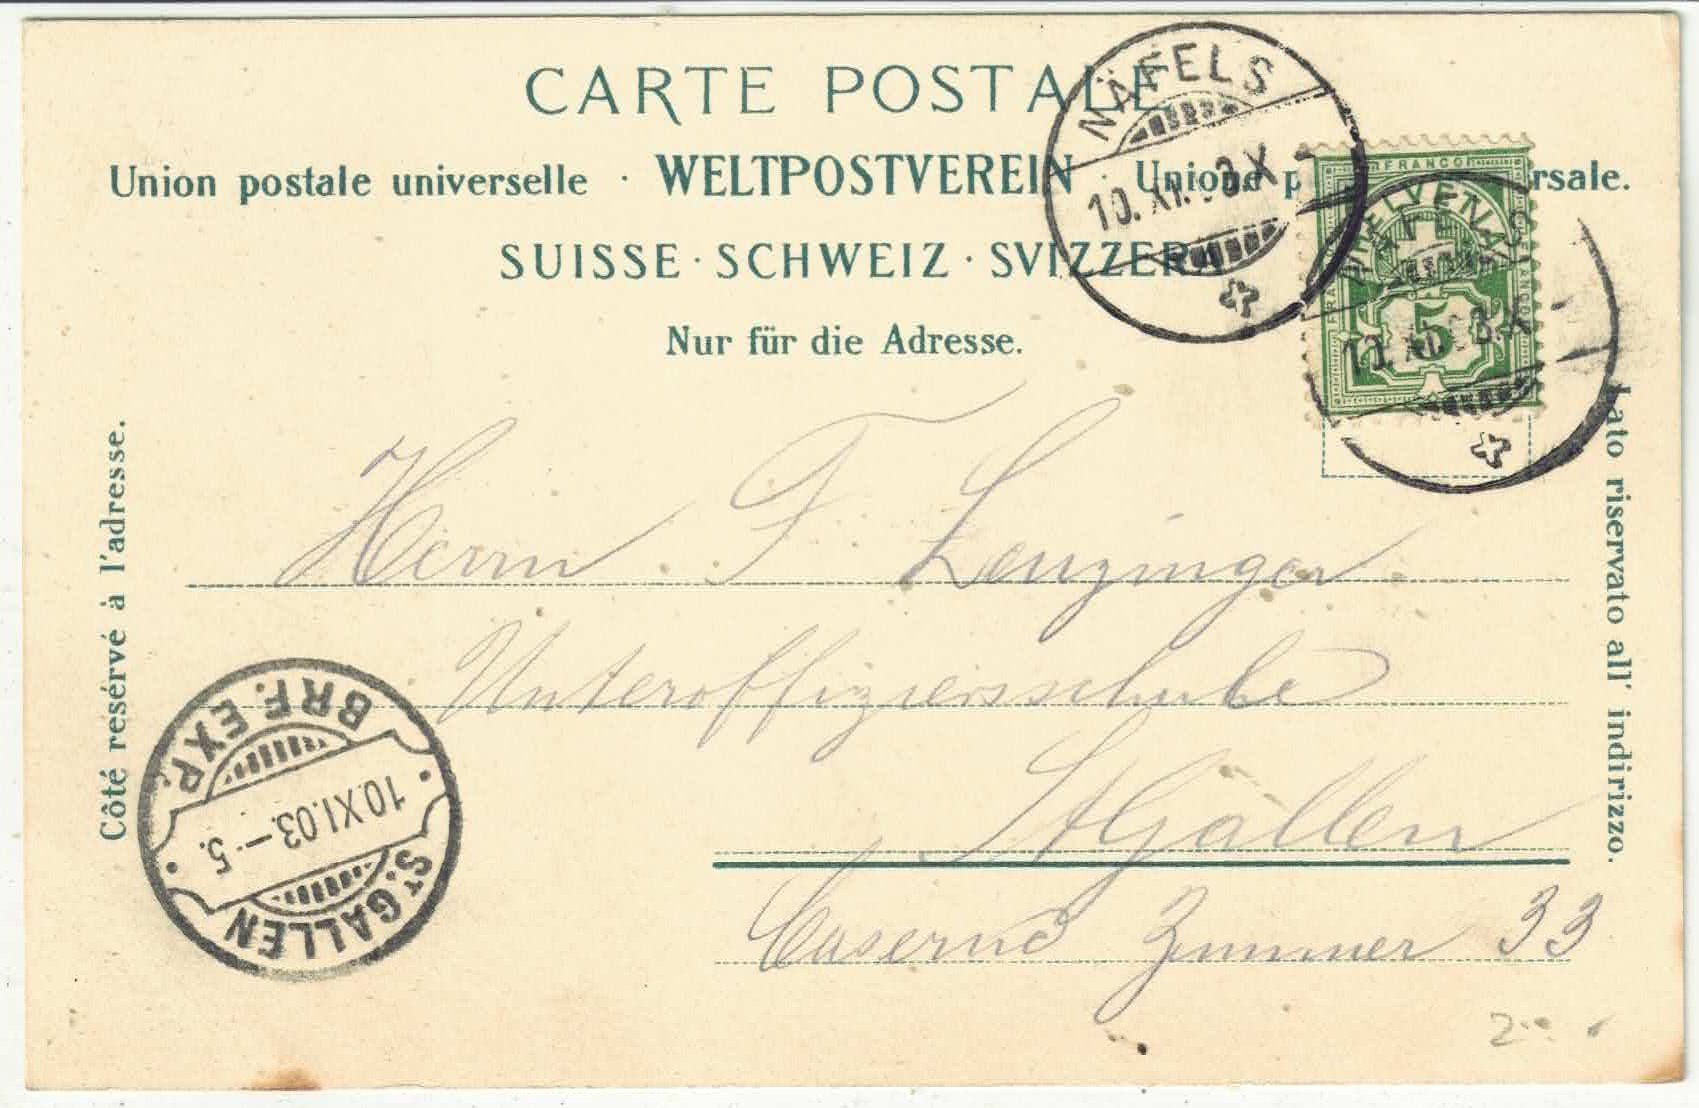 CARTE POSTALE
Union postale universelle · WELTPOSTVEREIN · Unione p rsale.
SUISSE · SCHWEIZ · SVIZZERA
Nur für die Adresse.
Côté resérvé à l'adresse.
Lato riservato all' indirizzo.
NÄFELS
10. XI. 03. X
FRANCO
HELVETIA
5
10. XI. 03. X
Herrn F Lenzinger
Unteroffiziersschule
St Gallen
Caserne Zimmer 33
BRF. EXP.
10.XI.03.–5.
ST. GALLEN